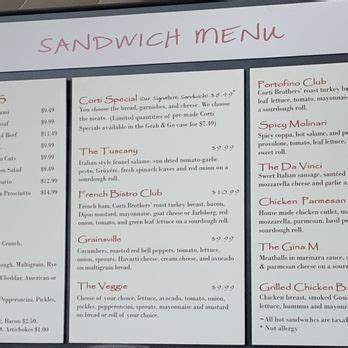 SANDWICH MENU
S
ami $9.49
oaf $9.49
d Beef $11.49
$9.49
Cuts $9.49
en Salad $9.49
iutto $12.99
Prosciutto $14.99
Crunch,
ugh, Multigrain, Rye
Cheddar, American or
Pepperoncini, Pickles,
Bacon $2.50,
0, Artichokes $1.00
Corti Special (our Signature Sandwich) $8.49*
You choose the bread, garnishes, and cheese. We choose
the meats. (Limited quantities of pre-made Corti
Specials available in the Grab & Go case for $7.49)
The Tuscany $9.99
Italian style fennel salame, sun dried tomato-garlic
pesto, Gruyère, fresh spinach leaves and red onion on a
sourdough roll.
French Bistro Club $10.99
French ham, Corti Brothers' roast turkey breast, bacon,
Dijon mustard, mayonnaise, goat cheese or Jarlsberg, red
onion, tomatoes, and green leaf lettuce on a sourdough roll.
Grainsville $9.99
Cucumbers, roasted red bell peppers, tomato, lettuce,
onion, sprouts, Havarti cheese, cream cheese, and avocado
on multigrain bread.
The Veggie $9.99
Cheese of your choice, lettuce, avocado, tomato, onion,
pickles, pepperoncini, sprouts, mayonnaise and mustard
on bread or roll of your choice.
Portofino Club
Corti Brothers' roast turkey br
leaf lettuce, tomato, mayonnaise
sourdough roll.
Spicy Molinari
Spicy coppa, hot salame, and p
provolone, tomato, leaf lettuce,
sweet roll.
The Da Vinci
Sweet Italian sausage, sautéed
mozzarella cheese and garlic
Chicken Parmesan
House made chicken cutlet, ma
mozzarella & parmesan cheese
The Gina M
Meatballs in marinara sauce,
& parmesan cheese on a sour
Grilled Chicken B
Chicken breast, smoked Gou
lettuce, mayonnaise
~All hot sandwiches are taxa
* Nut allergy